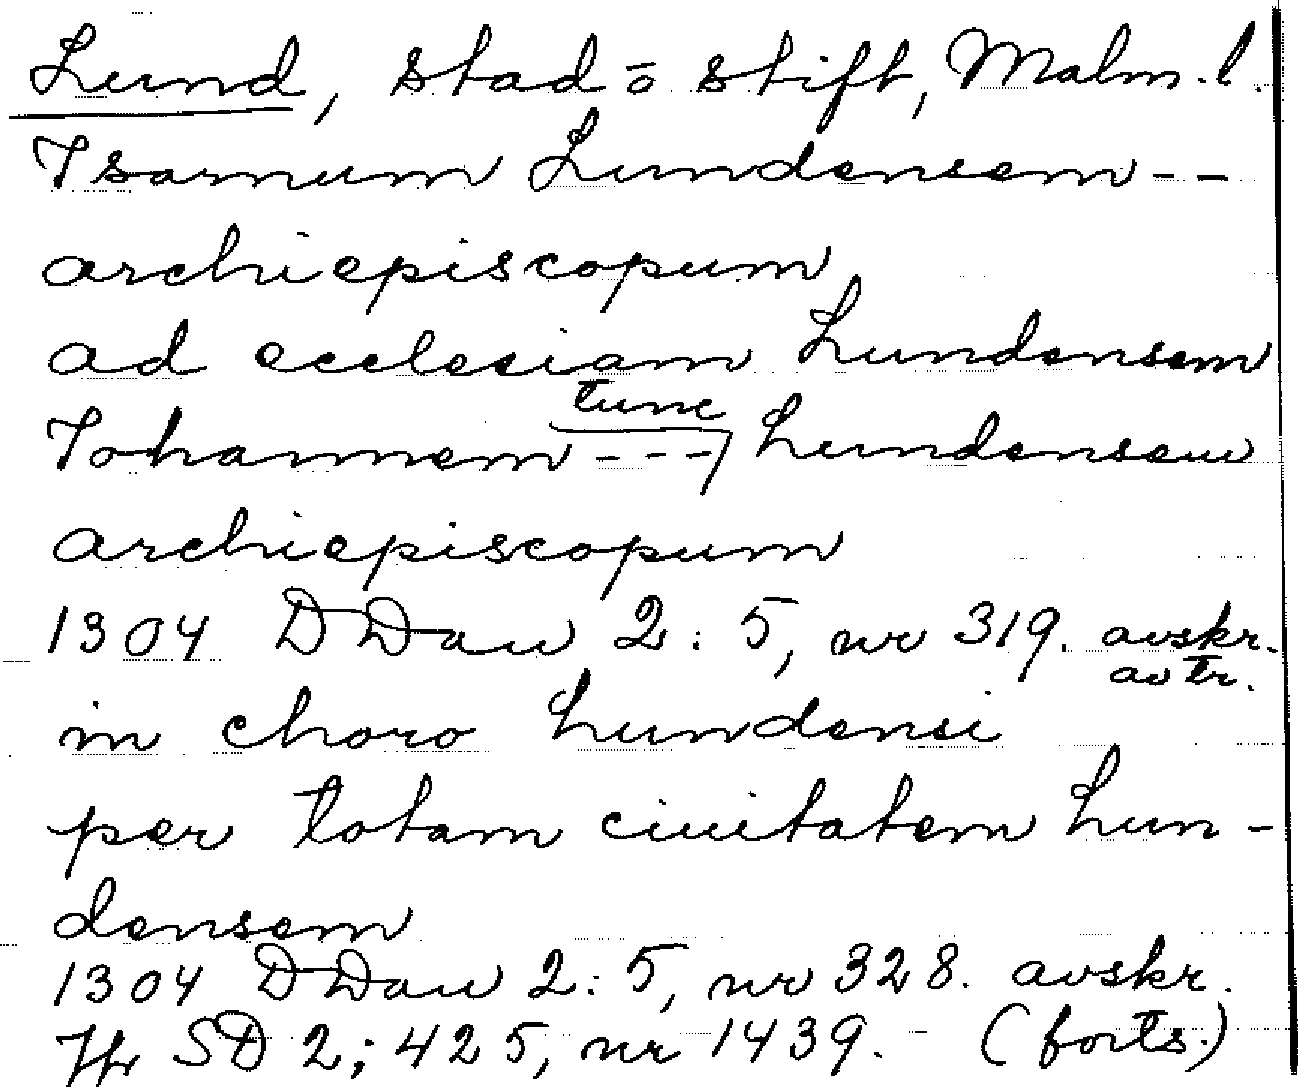 Lund, stad o stift, Malm.l.
Isarnum Lundensem --
archiepiscopum
ad ecclesiam Lundensem
tunc
Johannem --- Lundensem
archiepiscopum
1304 DDan 2:5, nr 319. avskr.
av tr.
in choro Lundensi
per totam ciuitatem Lun-
densem
1304 DDan 2:5, nr 328. avskr.
Jfr SD 2; 425, nr 1439. (forts.)